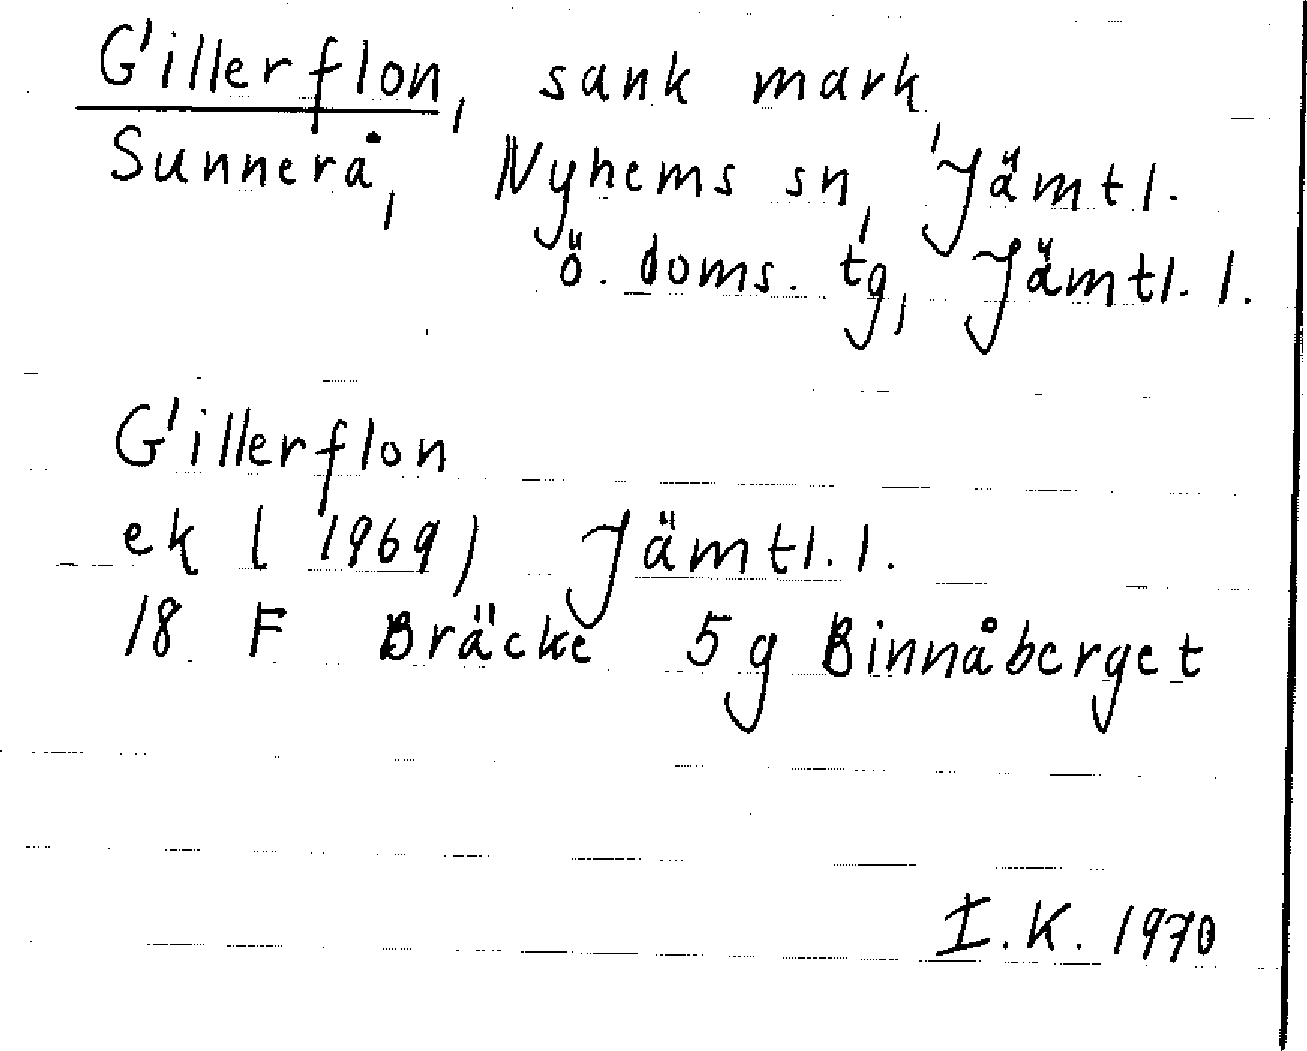 Gillerflon, sank mark,
Sunnerå, Nyhems sn, Jämtl.
ö. doms. tg, Jämtl. l.
Gillerflon
ek ( 1969) Jämtl. l.
18 F Bräcke 5 g Binnåberget
I.K. 1970